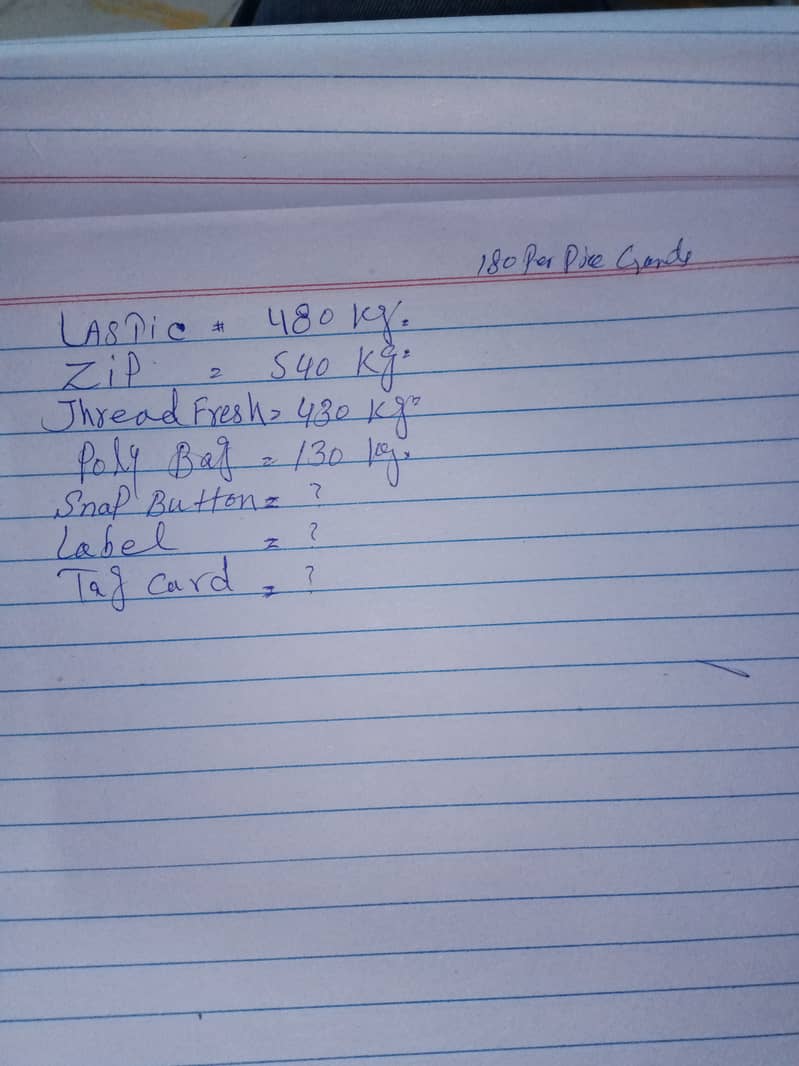 180 Per Pice Gands
LASTic = 480 kg.
ZiP = 540 kg.
Thread Fresh = 430 kg.
Poly Bag = 130 kg.
Snap Button = ?
Label = ?
Tag card = ?